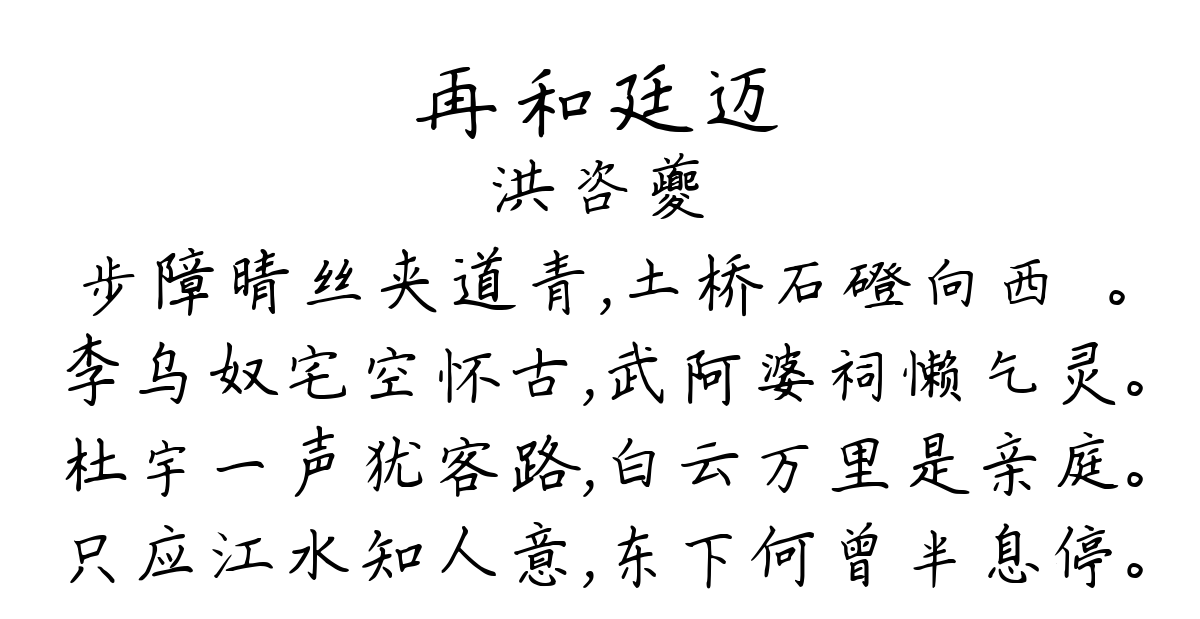 再和廷迈
洪咨夔
步障晴丝夹道青,土桥石磴向西 。
李乌奴宅空怀古,武阿婆祠懒乞灵。
杜宇一声犹客路,白云万里是亲庭。
只应江水知人意,东下何曾半息停。